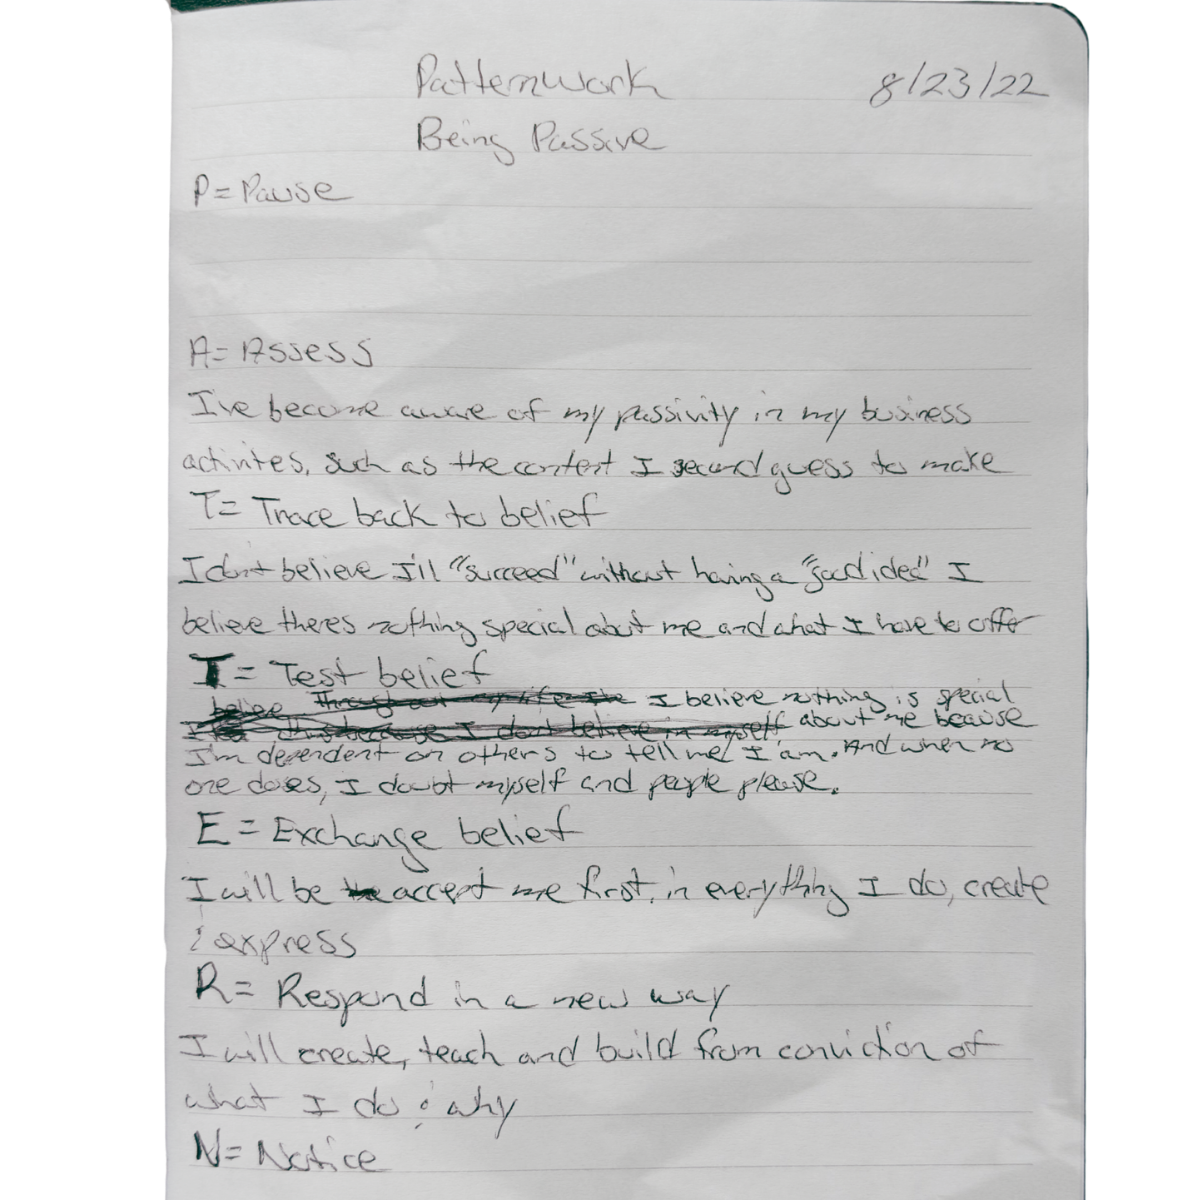 Patternwork 8/23/22
Being Passive
P = Pause
A = Assess
I've become aware of my passivity in my business
activites, such as the content I second guess to make
T = Trace back to belief
I don't believe I'll "succeed" without having a "good idea" I
believe theres nothing special about me and what I have to offer
T = Test belief
believe Throughout my life the I believe nothing is special
I this because I don't believe in myself about me because
I'm dependent on others to tell me I am. And when no
one does, I doubt myself and people please.
E = Exchange belief
I will be accept me first, in everything I do, create
& express
R = Respond in a new way
I will create, teach and build from conviction of
what I do & why
N = Notice